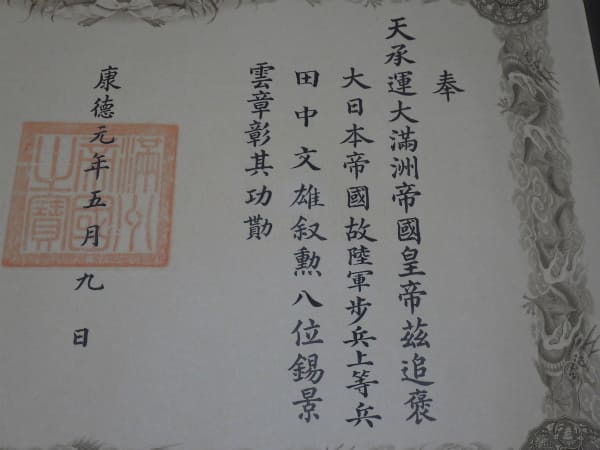 奉
天承運大滿洲帝國皇帝茲追褒
大日本帝國故陸軍步兵上等兵
田中文雄叙勲八位錫景
雲章彰其功勛
康德元年五月九日
滿州帝國之寶